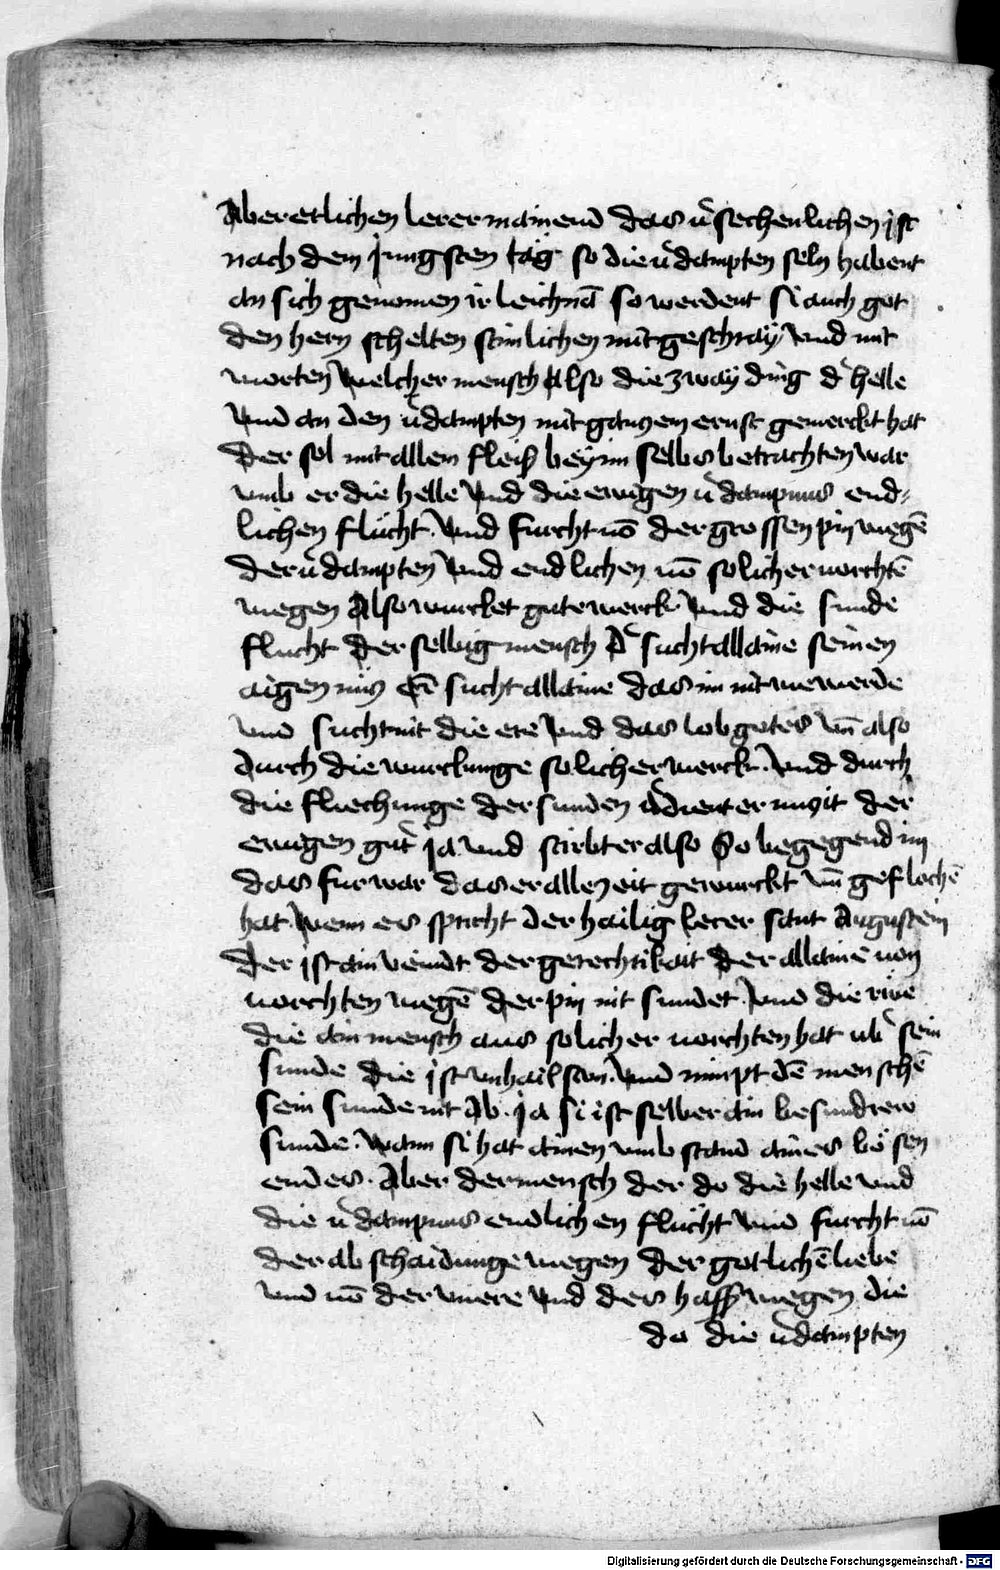 Aber etlichen lerer mainend das v̾sechenlichen jst
nach dem jungsten tag so die v̾dampten seln habent
an sich genomen ir leichnā so werdent si auch got
den hern schelten stimlichen mit geschray vnd mit
worten Welcher mensch Also die zway ding d̾ helle
vnd an den v̾dampten mit ganczem ernst gemerckt hat
der sol mit allem fleiß bey im selbs betrachten war
vmb er die helle vnd die ewigen v̾dampnus end-
lichen flücht. vnd furcht vō der grossen pin wegē
der v̾dampten vnd endlichen vō solicher vorchtē
wegen Also wurcket gute werck vnd die sunde
flücht der selbig mensch d̾ sucht allaine seinen
aigen nücz Er sucht allaine das im nit we werde
vnd sucht nit die ere vnd das lob gotes vn̄ also
durch die wurckunge solicher werck. vnd durch
die fliechunge der sunden v̾dient er niczit der
ewigen güt̾ ja vnd stirbt er also So begegend im
das furwar das er allczeit gewurckt vn̄ geflochē
hat. Wenn es spricht der hailig lerer sant Augustein
der ist ain veindt der gerechtikait der allaine von
vorchten wegē der pin nit sundet. vnd die riwe
die ain mensch aus solicher vorchten hat vb̾ sein
sunde die jst vnhailsam. vnd nimpt dē menschē
sein sunde nit Ab. ja si ist selber ain besundrew
sunde. Wann si hat ainen vmbstand aines bösen
endes. Aber der mensch der do die helle vnd
die v̾dampnus endlichen flücht vnd furcht vō
der abschaidunge wegen der gotlichē liebe
vnd vō der vnere vnd des hass wegen die
do die v̾dampten
Digitalisierung gefördert durch die Deutsche Forschungsgemeinschaft - DFG